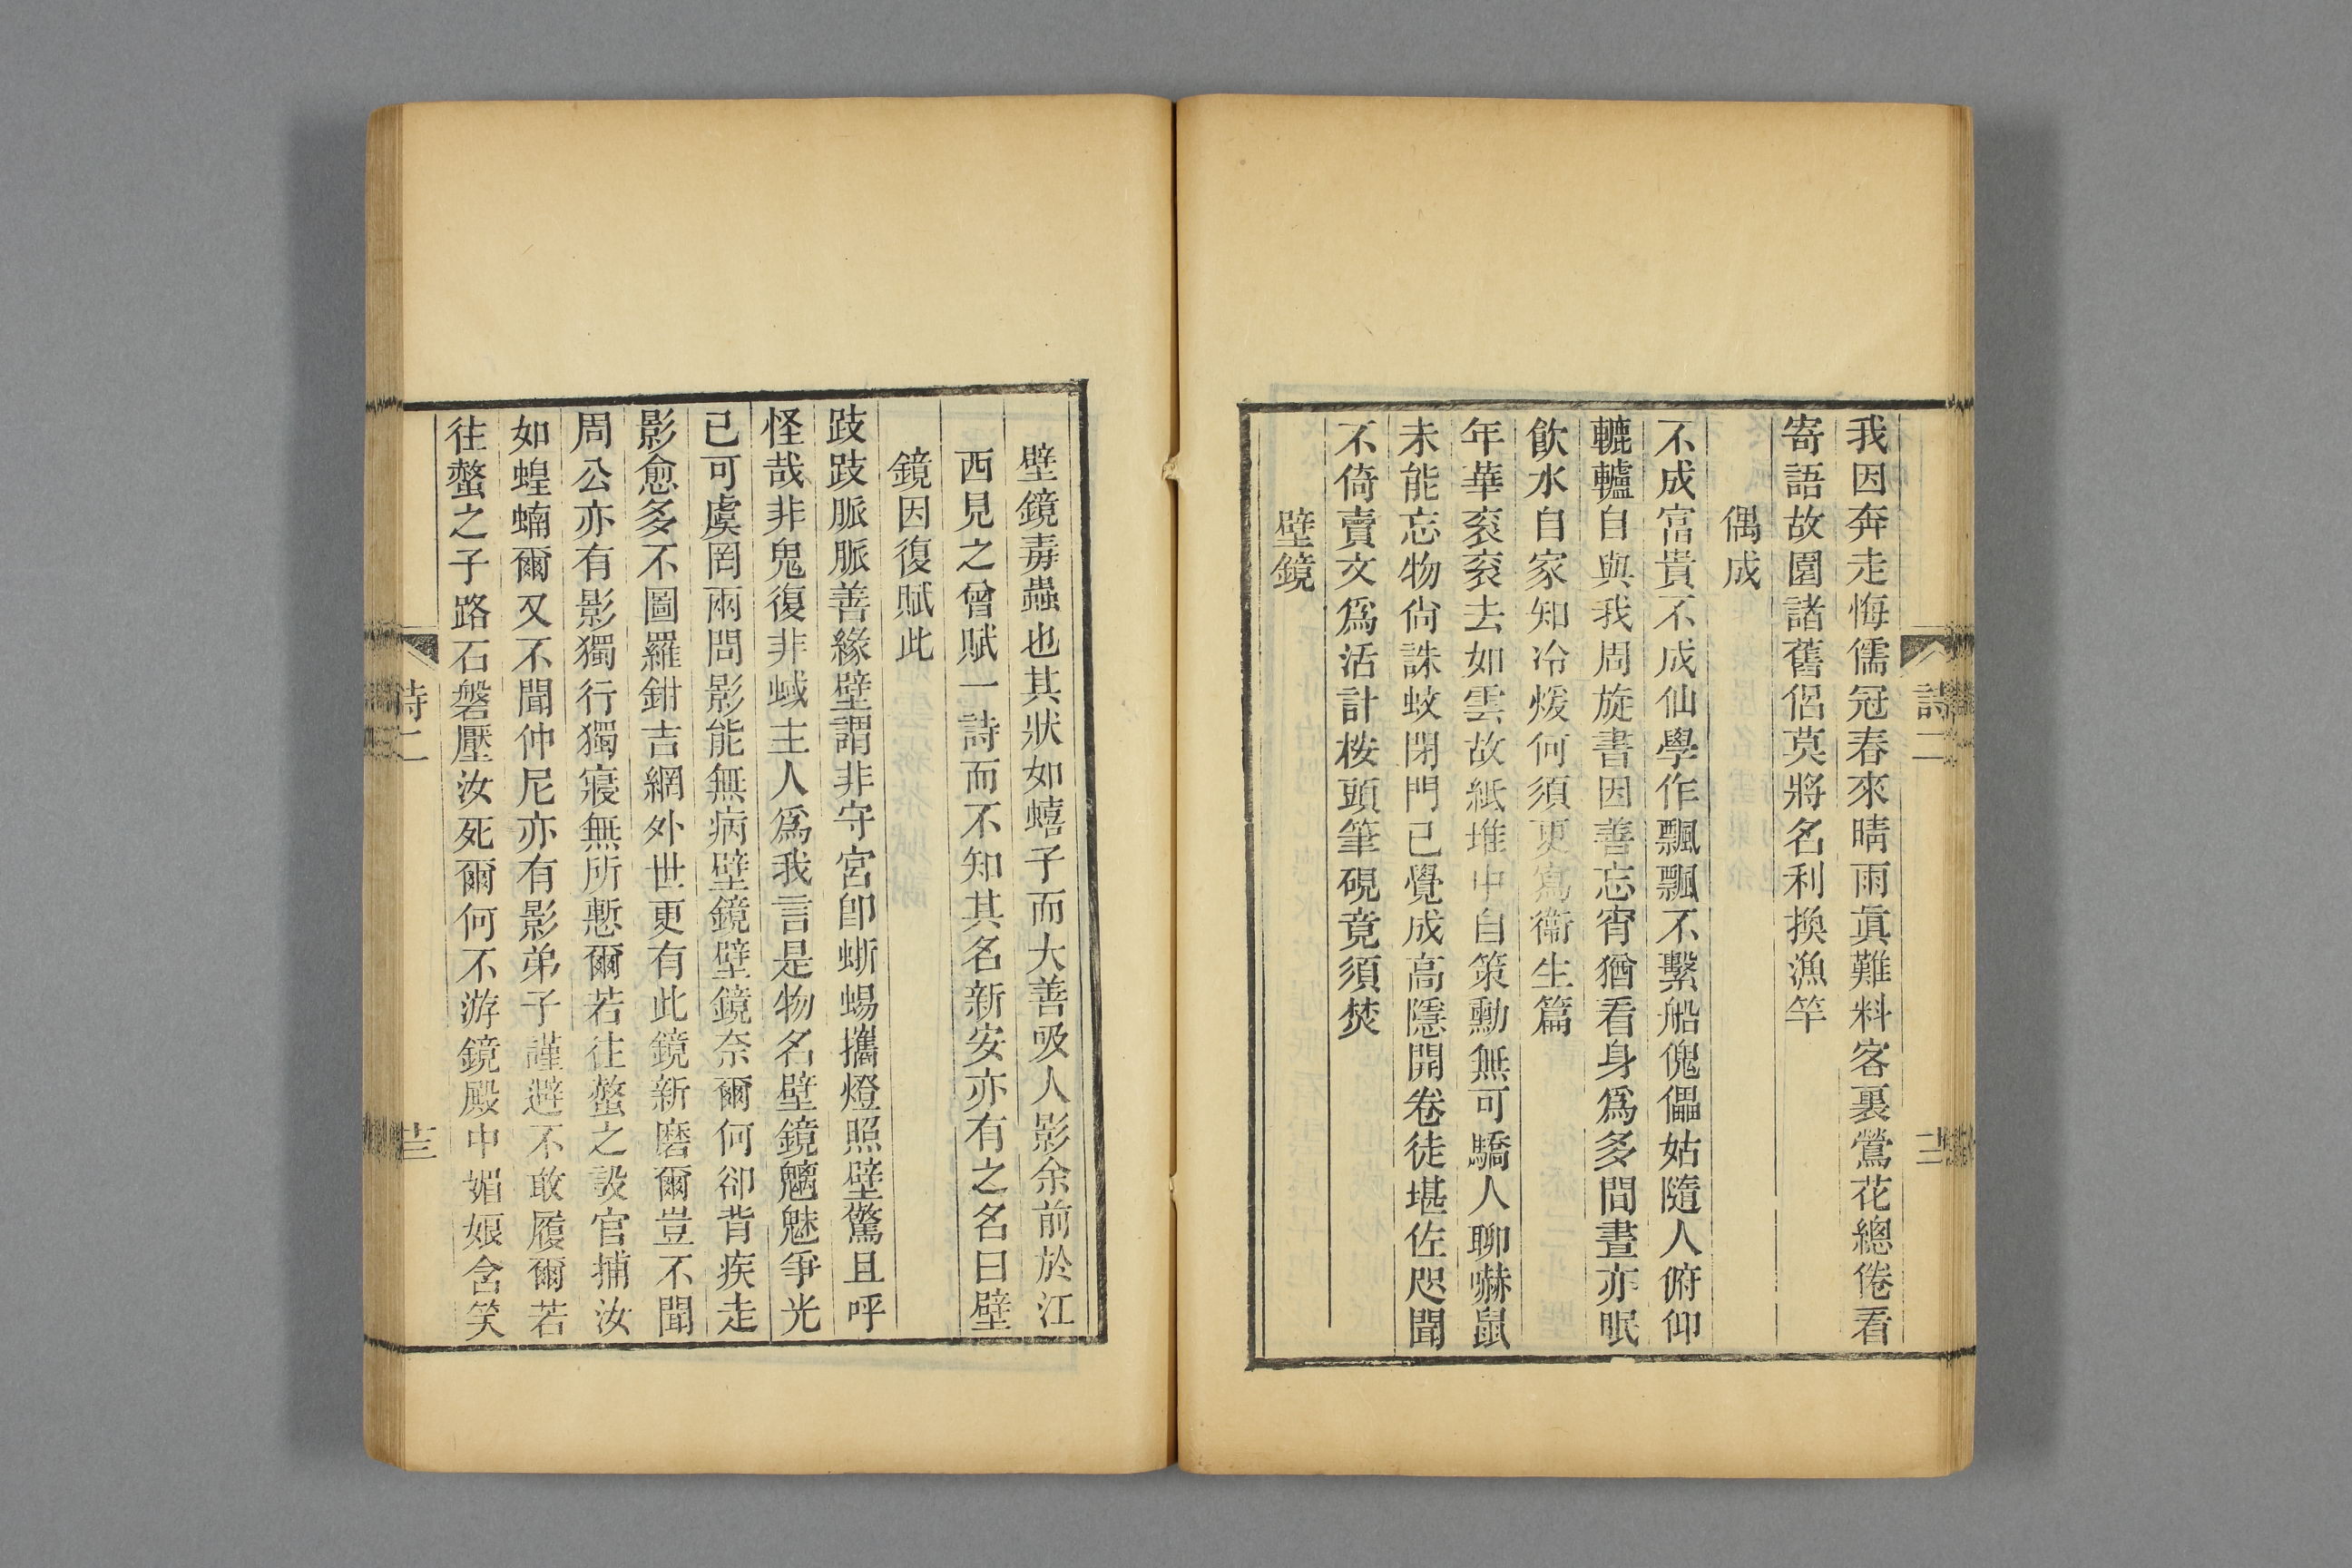 我因奔走悔儒冠春來晴雨眞難料客裏鶯花總倦看
寄語故園諸舊侶莫將名利換漁竿
偶成
不成富貴不成仙學作飄飄不繫船傀儡姑隨人俯仰
轆轤自與我周旋書因善忘宵猶看身爲多問晝亦眠
飮水自家知冷煖何須更寫衞生篇
年華衮衮去如雲故紙堆中自策勳無可驕人聊嚇鼠
未能忘物尙誅蚊閉門已覺成高隱開卷徒堪佐咫聞
不倚賣文爲活計桉頭筆硯竟須焚
壁鏡
詩二
壁鏡毒蟲也其狀如蟢子而大善吸人影余前於江
西見之曾賦一詩而不知其名新安亦有之名曰壁
鏡因復賦此
跂跂脈脈善緣壁謂非守宮卽蜥蜴攜燈照壁驚且呼
怪哉非鬼復非蜮主人爲我言是物名壁鏡魑魅爭光
已可虞罔兩問影能無病壁鏡壁鏡奈爾何卻背疾走
影愈多不圖羅鉗吉網外世更有此鏡新磨爾豈不聞
周公亦有影獨行獨寢無所慙爾若往螫之設官捕汝
如蝗蝻爾又不聞仲尼亦有影弟子謹避不敢履爾若
往螫之子路石磐壓汝死爾何不游鏡殿中媚娘含笑
詩二